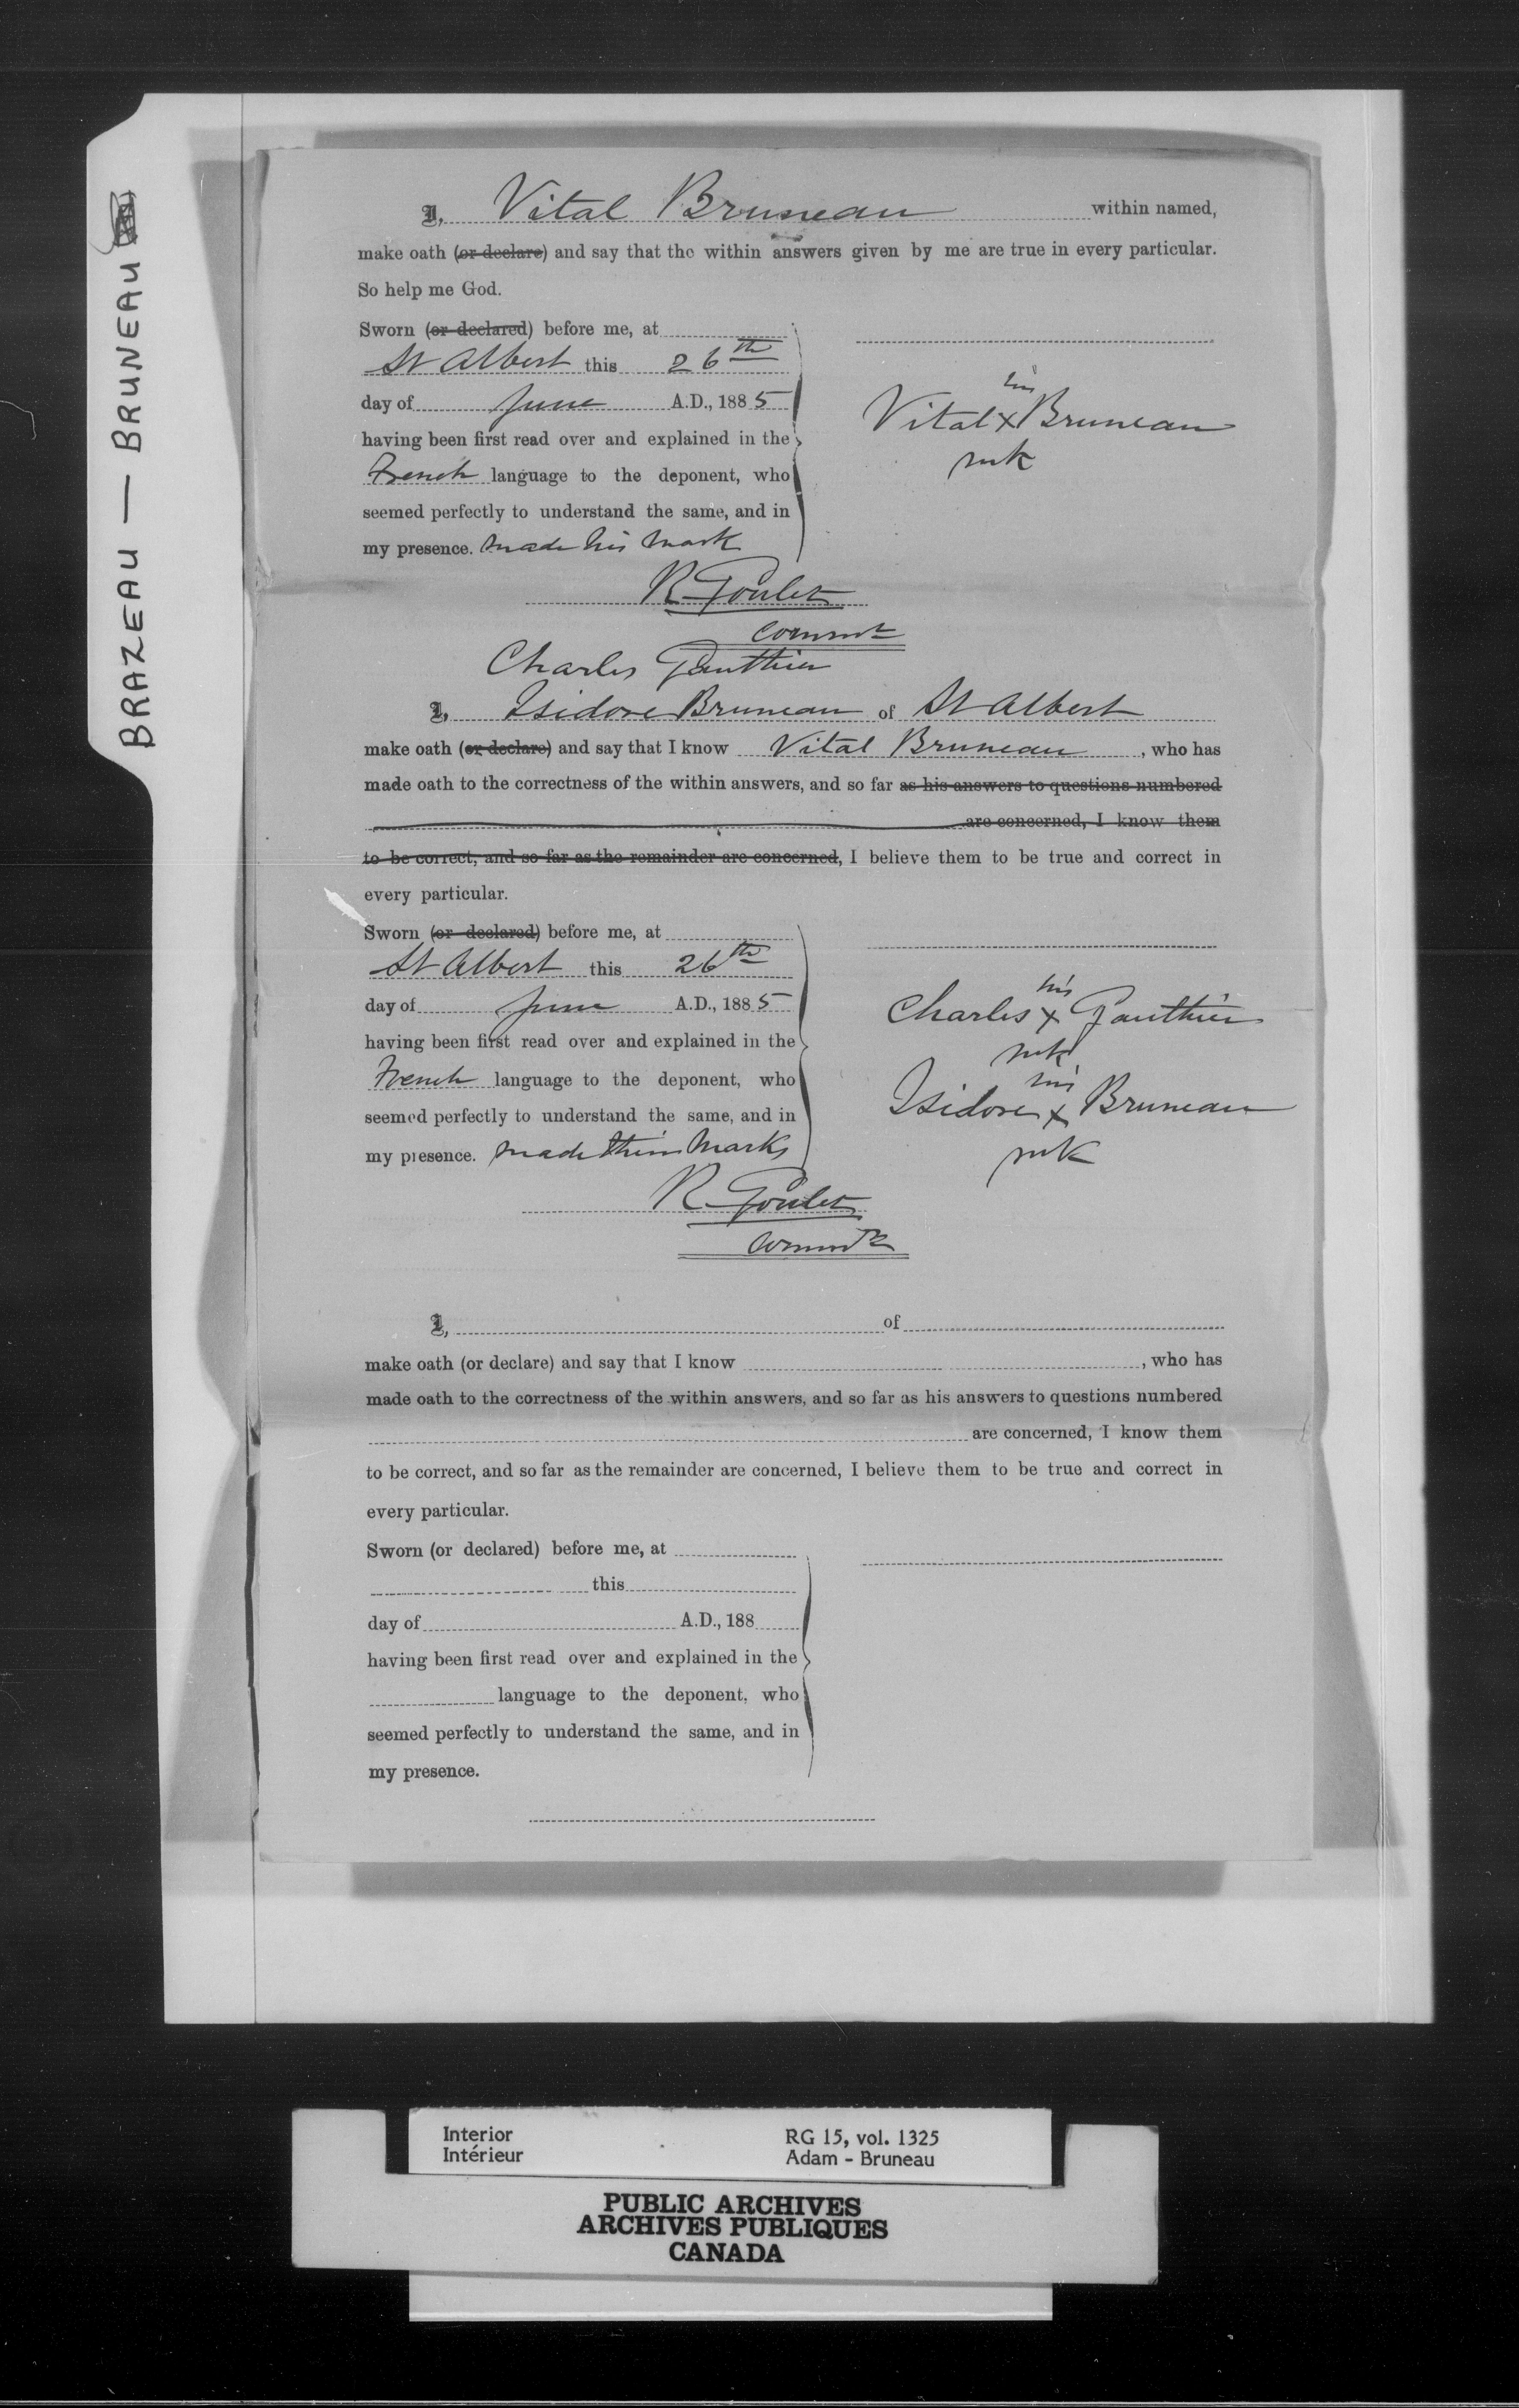 BRAZEAU — BRUNEAU
I, Vital Bruneau within named,
make oath (or declare) and say that the within answers given by me are true in every particular.
So help me God.
Sworn (or declared) before me, at
St Albert this 26th
day of June A.D., 1885
having been first read over and explained in the
French language to the deponent, who
seemed perfectly to understand the same, and in
my presence. made his mark
his
Vital x Bruneau
mk
R Goulet
Commr
Charles Gauthier
I, Isidore Bruneau of St Albert
make oath (or declare) and say that I know Vital Bruneau, who has
made oath to the correctness of the within answers, and so far as his answers to questions numbered
are concerned, I know them
to be correct, and so far as the remainder are concerned, I believe them to be true and correct in
every particular.
Sworn (or declared) before me, at
St Albert this 26th
day of June A.D., 1885
having been first read over and explained in the
French language to the deponent, who
seemed perfectly to understand the same, and in
my presence. made their marks
his
Charles x Gauthier
mk
his
Isidore x Bruneau
mk
R Goulet
Commr
I, of
make oath (or declare) and say that I know , who has
made oath to the correctness of the within answers, and so far as his answers to questions numbered
are concerned, I know them
to be correct, and so far as the remainder are concerned, I believe them to be true and correct in
every particular.
Sworn (or declared) before me, at
this
day of A.D., 188
having been first read over and explained in the
language to the deponent, who
seemed perfectly to understand the same, and in
my presence.
Interior RG 15, vol. 1325
Intérieur Adam - Bruneau
PUBLIC ARCHIVES
ARCHIVES PUBLIQUES
CANADA